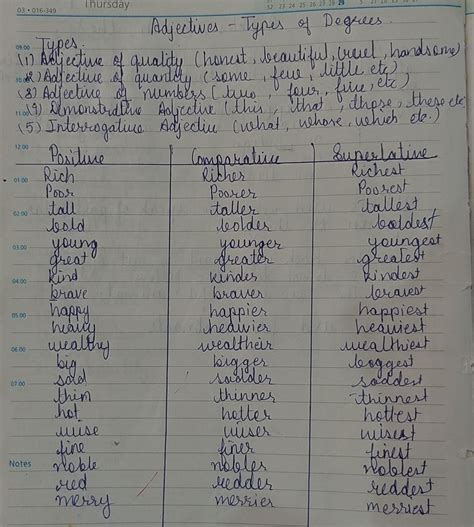 03 • 016-349 Thursday 52 23 24 25 26 27 28 29
Adjectives - Types of Degrees
09:00 Types
(1) Adjective of quality (honest, beautiful, cruel, handsome)
2) Adjective of quantity (some, few, little etc)
(3) Adjective of numbers (two, four, five, etc)
11:00 (4) Demonstrative Adjective (this, that, these, these etc
(5) Interrogative Adjective (what, whose, which etc.)
12:00
Positive Comparative Superlative
01:00 Rich Richer Richest
Poor Poorer Poorest
02:00 tall taller tallest
bold bolder boldest
03:00 young younger youngest
great greater greatest
kind kinder kindest
brave braver bravest
happy happier happiest
heavy heavier heaviest
06:00 wealthy wealtheir wealthiest
big bigger biggest
07:00 sad sadder saddest
thin thinner thinnest
hot hotter hottest
wise wiser wisest
fine finer finest
Notes noble nobler noblest
red redder reddest
merry merrier merriest